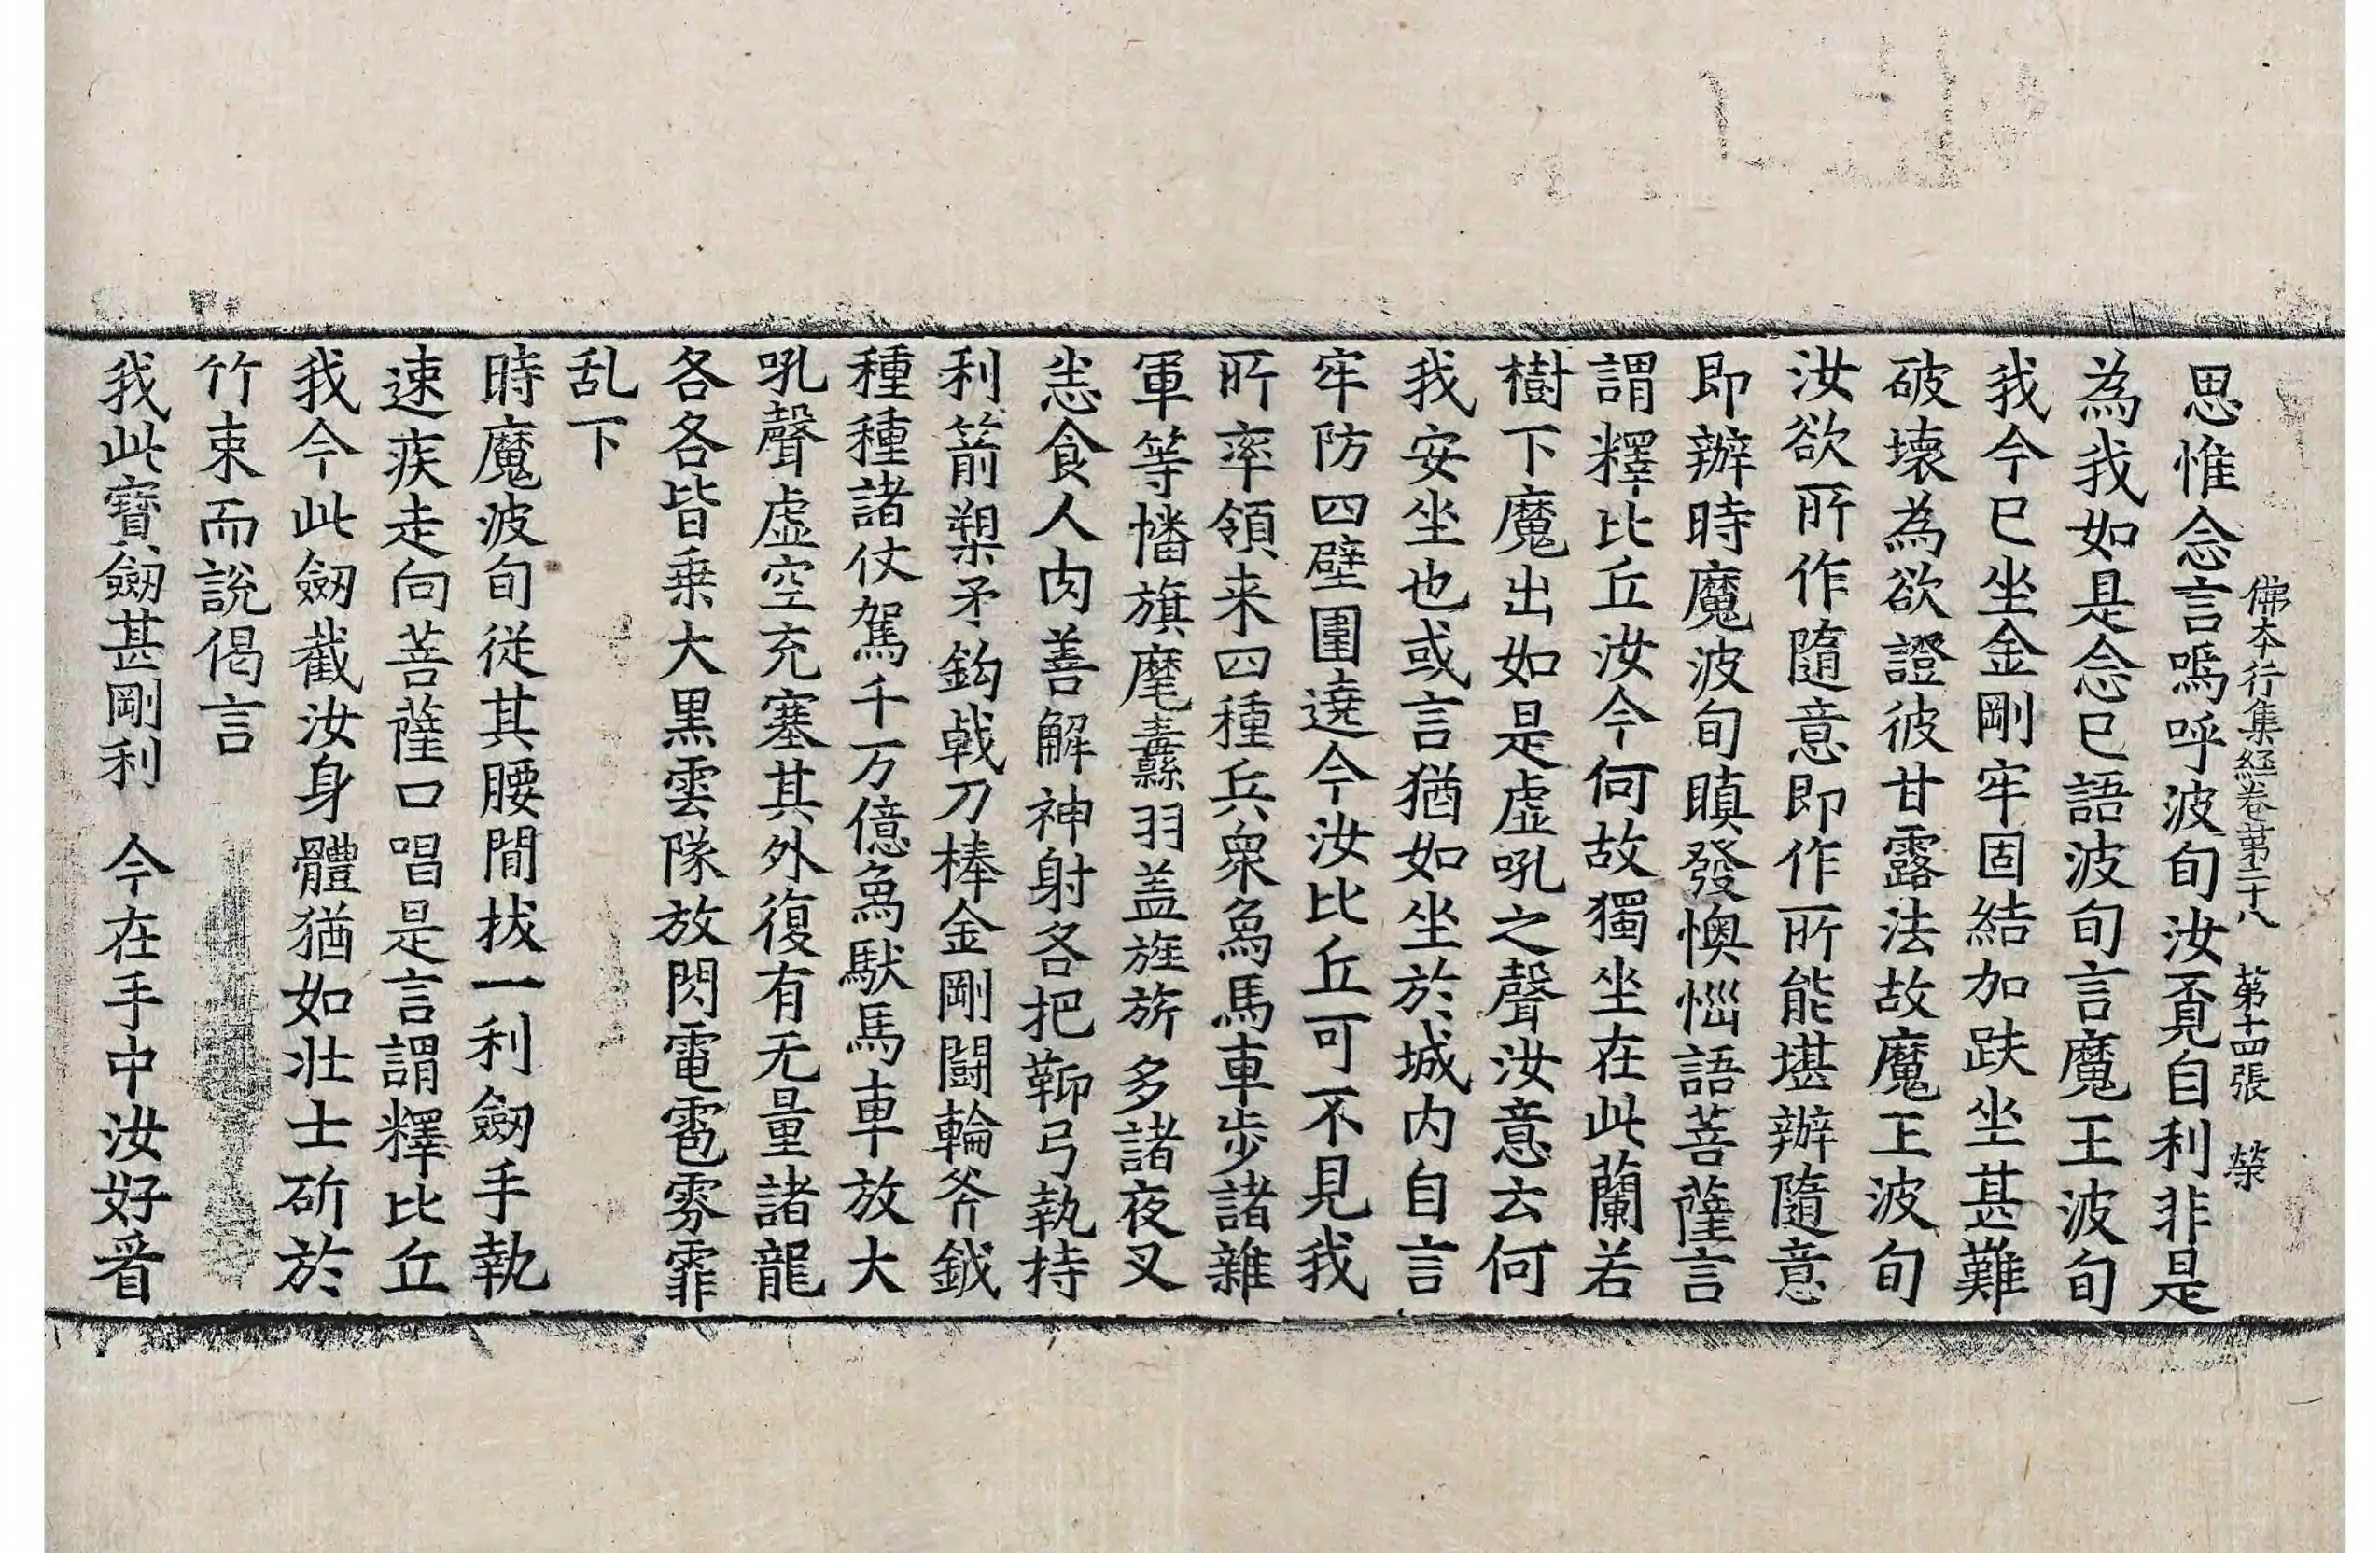 佛本行集經卷第二十八 第十四張 榮
思惟念言嗚呼波旬汝覔自利非是
為我如是念已語波旬言魔王波旬
我今已坐金剛牢固結加趺坐甚難
破壞為欲證彼甘露法故魔王波旬
汝欲所作隨意即作所能堪辦隨意
即辦時魔波旬瞋發懊惱語菩薩言
謂釋比丘汝今何故獨坐在此蘭若
樹下魔出如是虛吼之聲汝意云何
我安坐也或言猶如坐於城内自言
牢防四壁圍遶今汝比丘可不見我
所率領来四種兵衆象馬車步諸雜
軍等幡旗麾纛羽盖旌旂多諸夜叉
恙食人肉善解神射各把鞆弓執持
利箭槊矛鈎戟刀棒金剛鬪輪斧鉞
種種諸仗駕千万億象馱馬車放大
吼聲虛空充塞其外復有无量諸龍
各各皆乗大黒雲隊放閃電雹雰霏
乱下
時魔波旬従其腰間拔一利劒手執
速疾走向菩薩口唱是言謂釋比丘
我今此劒截汝身體猶如壮士斫於
竹束而說偈言
我此寶劒甚剛利 今在手中汝好看